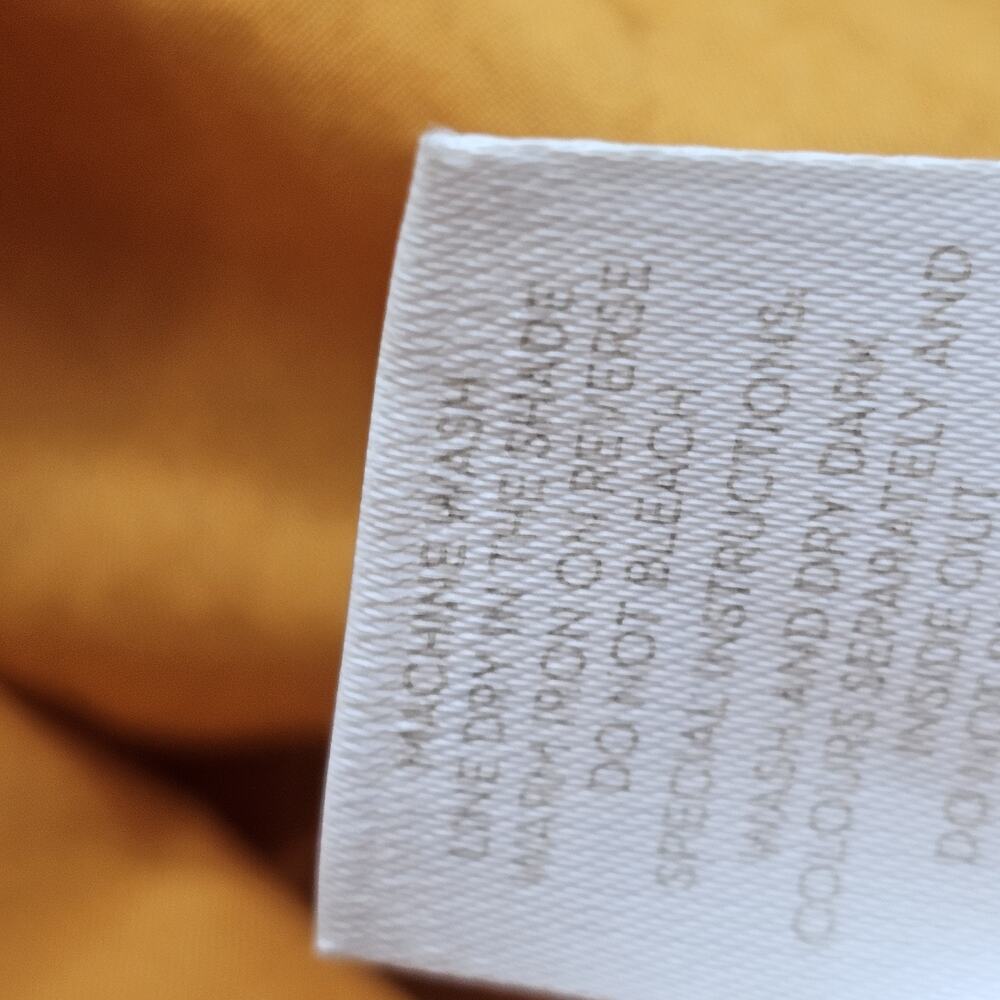 MACHINE WASH
LINE DRY IN THE SHADE
WARM IRON ON REVERSE
DO NOT BLEACH
SPECIAL INSTRUCTIONS.
WASH AND DRY DARK
COLOURS SEPARATELY AND
INSIDE OUT
DO NOT